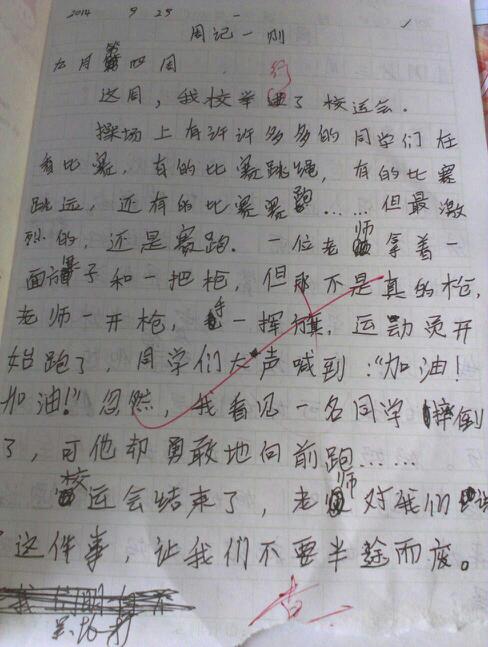 2014 9 25
周记一则
九月第四周
行
这周，我校举了校运会．
操场上有许许多多的同学们在
看比赛，有的比赛跳绳，有的比赛
跳远，还有的比赛赛跑……但最激
烈的，还是赛跑．一位老师拿着一
面旗子和一把枪，但那不是真的枪，
老师一开枪，手一挥，运动员开
始跑了，同学们大声喊到："加油！
加油！"忽然，我看见一名同学摔倒
了，可他却勇敢地向前跑……
校运会结束了，老师对我们说
这件事，让我们不要半途而废。
查